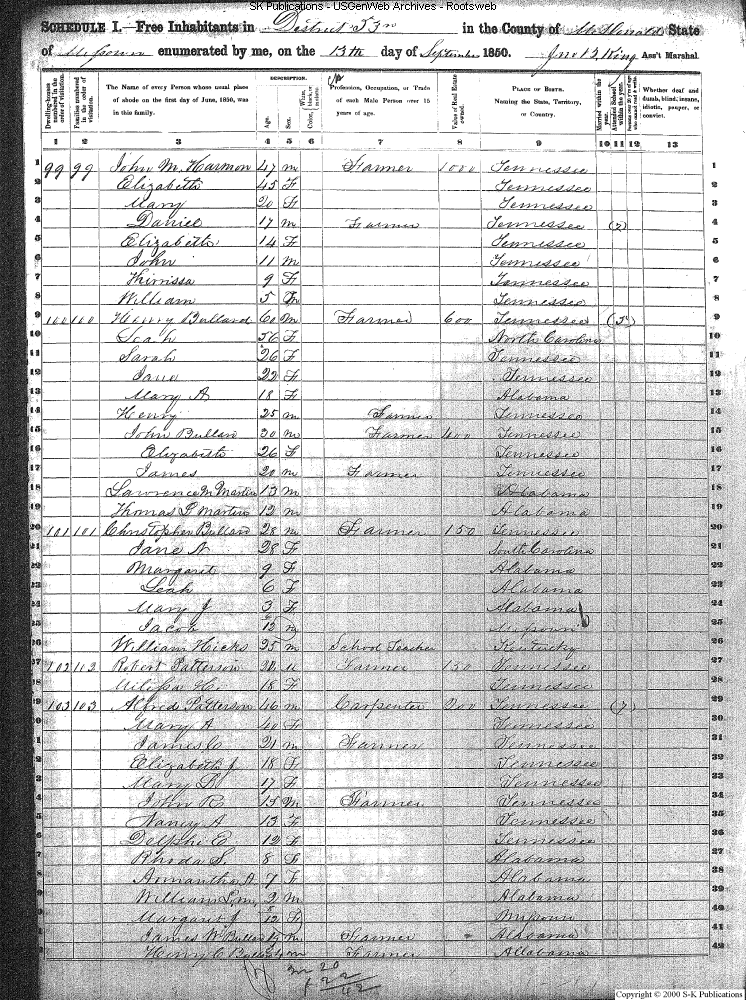 SK Publications - USGenWeb Archives - Rootsweb
SCHEDULE I.—Free Inhabitants in District 53rd in the County of State
of enumerated by me, on the 13th day of September 1850. Ass't Marshal.
Dwelling-houses numbered in the order of visitation.
Families numbered in the order of visitation.
The Name of every Person whose usual place of abode on the first day of June, 1850, was in this family.
DESCRIPTION.
Age.
Sex.
Color, White, black, or mulatto.
Profession, Occupation, or Trade of each Male Person over 15 years of age.
Value of Real Estate owned.
PLACE OF BIRTH. Naming the State, Territory, or Country.
Married within the year.
Attended School within the year.
Persons over 20 y'rs of age who cannot read & write.
Whether deaf and dumb, blind, insane, idiotic, pauper, or convict.
1 2 3 4 5 6 7 8 9 10 11 12 13
1 99 99 John M. Harmon 47 m Farmer 1000 Tennessee 1
2 Elizabeth 45 F Tennessee 2
3 Mary 20 F Tennessee 3
4 Daniel 17 m Farmer Tennessee 4
5 Elizabeth 14 F Tennessee 5
6 John 11 m Tennessee 6
7 9 F Tennessee 7
8 William 5 m Tennessee 8
9 100 100 Henry Bullard 60 m Farmer 600 Tennessee 9
10 56 F North Carolina 10
11 Sarah 26 F Tennessee 11
12 Jane 22 F Tennessee 12
13 Mary A 18 F Alabama 13
14 Henry 25 m Farmer Tennessee 14
15 John Bullard 30 m Farmer 400 Tennessee 15
16 Elizabeth 26 F Tennessee 16
17 James 20 m Farmer Tennessee 17
18 Lawrence M Martin 13 m Alabama 18
19 Thomas Martin 12 m Alabama 19
20 101 101 Christopher Bullard 28 m Farmer 150 Tennessee 20
21 Jane A 28 F South Carolina 21
22 Margaret 9 F Alabama 22
23 Leah 6 F Alabama 23
24 Mary J 3 F Alabama 24
25 Jacob m 25
26 William Hicks 25 m School Teacher Kentucky 26
27 102 102 Robert Patterson Farmer 150 Tennessee 27
28 18 F Tennessee 28
29 103 103 Alfred Patterson 46 m Carpenter 200 Tennessee 29
30 Mary A 40 F Tennessee 30
31 James C 21 m Farmer Tennessee 31
32 Elizabeth J 18 F Tennessee 32
33 Mary 17 F Tennessee 33
34 John R 15 m Farmer Tennessee 34
35 Nancy A 13 F Tennessee 35
36 Delphi E 12 F Tennessee 36
37 Rhoda S. 8 F Alabama 37
38 Armantha A 7 F Alabama 38
39 William 2 m Alabama 39
40 Margaret J F Missouri 40
41 James Farmer Alabama 41
42 Henry C m Farmer Alabama 42
m 20
f 22
42
Copyright © 2000 S-K Publications